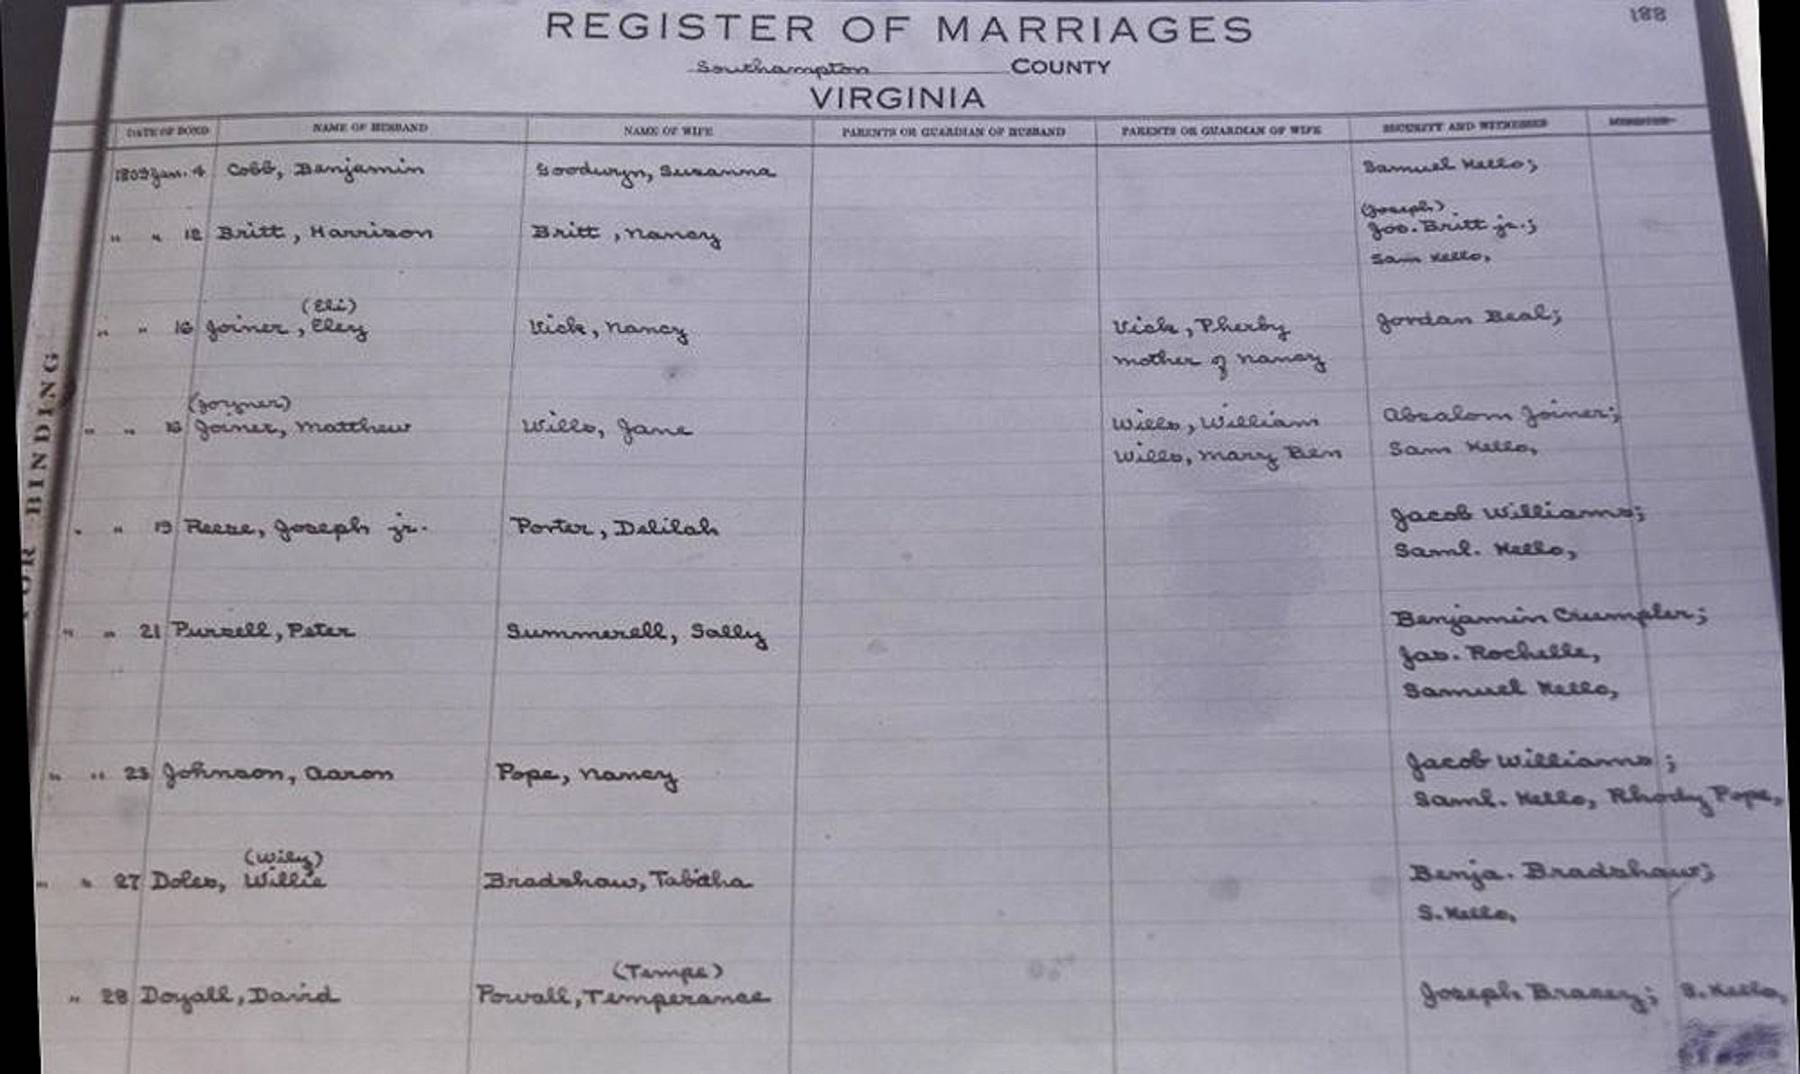 188
REGISTER OF MARRIAGES
Southampton COUNTY
VIRGINIA
DATE OF BOND NAME OF HUSBAND NAME OF WIFE PARENTS OR GUARDIAN OF HUSBAND PARENTS OR GUARDIAN OF WIFE SECURITY AND WITNESSES MINISTER
1809 Jan. 4 Cobb, Benjamin Goodwyn, Susanna Samuel Kello;
(Joseph)
" " 12 Britt, Harrison Britt, Nancy Jos. Britt jr.;
Sam Kello,
(Eli)
" " 16 Joiner, Eley Vick, Nancy Vick, Pherby Jordan Beal;
mother of Nancy
(Joyner)
" " 16 Joiner, Matthew Wills, Jane Wills, William Absalom Joiner;
Wills, Mary Ben Sam Kello,
" " 19 Reese, Joseph jr. Porter, Delilah Jacob Williams;
Saml. Kello,
" " 21 Purzell, Peter Summerell, Sally Benjamin Crumpler;
Jas. Rochelle,
Samuel Kello,
" " 23 Johnson, Aaron Pope, Nancy Jacob Williams;
Saml. Kello, Rhody Pope,
(Wily)
" " 27 Doles, Willie Bradshaw, Tabitha Benja. Bradshaw;
S. Kello,
(Tempe)
" 28 Doyall, David Powall, Temperance Joseph Bracey; S. Kello,
OR BINDING